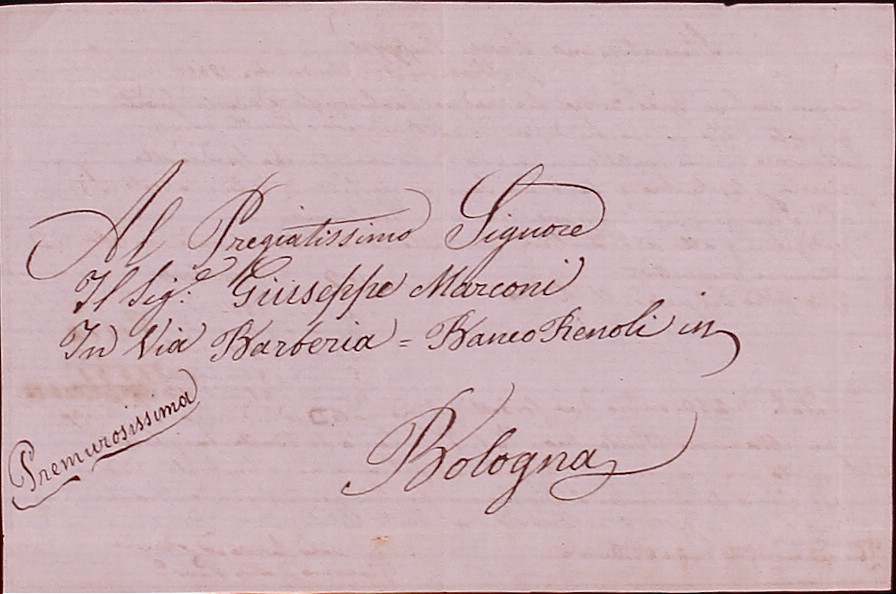 Al Pregiatissimo Signore
Il Sig.e Giuseppe Marconi
In Via Barberia = Banco Renoli in
Bologna
Premurosissima